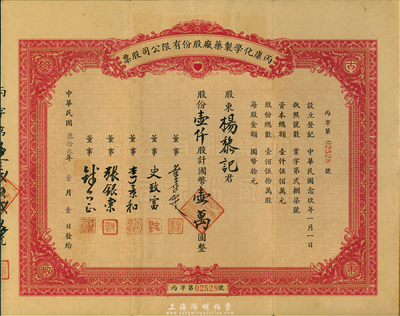 丙康化學製藥廠股份有限公司股票
丙字第02528號
設立登記 中華民國念玖年一月一日
執照號數 業字第貳捌柒號
資本總額 壹仟伍佰萬元
股份總數 壹佰伍拾萬股
每股金額 國幣拾元
股東 楊黎記 君
股份壹仟股計國幣壹萬圓整
董事
董事 史致富
董事 李
董事 張銀東
董事
中華民國叁拾 年 壹月壹日發給
丙字第02528號
上海陽明拍賣